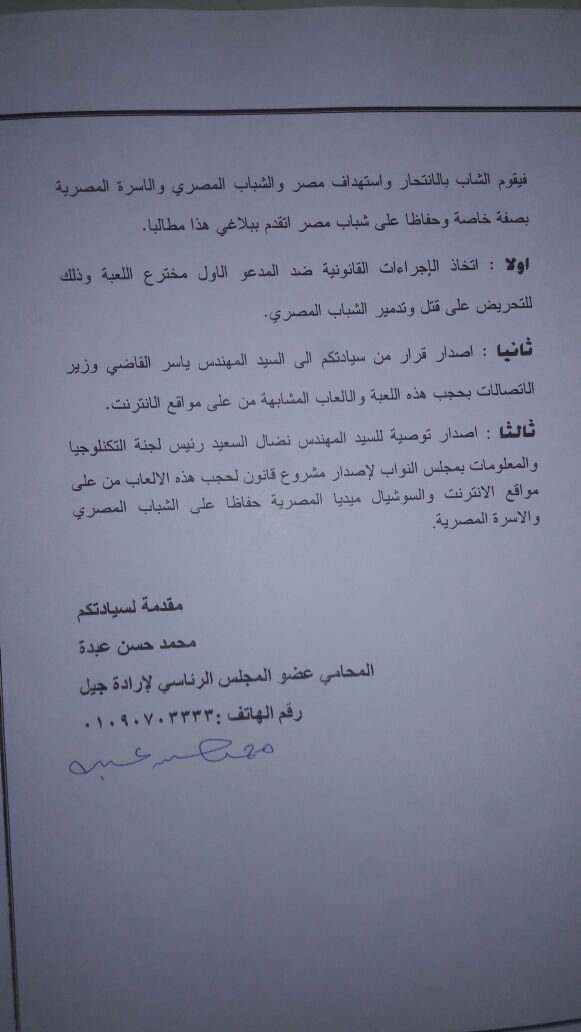 فيقوم الشاب بالانتحار واستهداف مصر والشباب المصري والاسرة المصرية
بصفة خاصة وحفاظا على شباب مصر اتقدم ببلاغي هذا مطالبا.
اولا : اتخاذ الإجراءات القانونية ضد المدعو الاول مخترع اللعبة وذلك
للتحريض على قتل وتدمير الشباب المصري.
ثانيا : اصدار قرار من سيادتكم الى السيد المهندس ياسر القاضي وزير
الاتصالات بحجب هذه اللعبة والالعاب المشابهة من على مواقع الانترنت.
ثالثا : اصدار توصية للسيد المهندس نضال السعيد رئيس لجنة التكنلوجيا
والمعلومات بمجلس النواب لإصدار مشروع قانون لحجب هذه الالعاب من على
مواقع الانترنت والسوشيال ميديا المصرية حفاظا على الشباب المصري
والاسرة المصرية.
مقدمة لسيادتكم
محمد حسن عبدة
المحامي عضو المجلس الرئاسي لإرادة جيل
رقم الهاتف :٠١٠٩٠٧٠٣٣٣٣
محمد حسن عبده